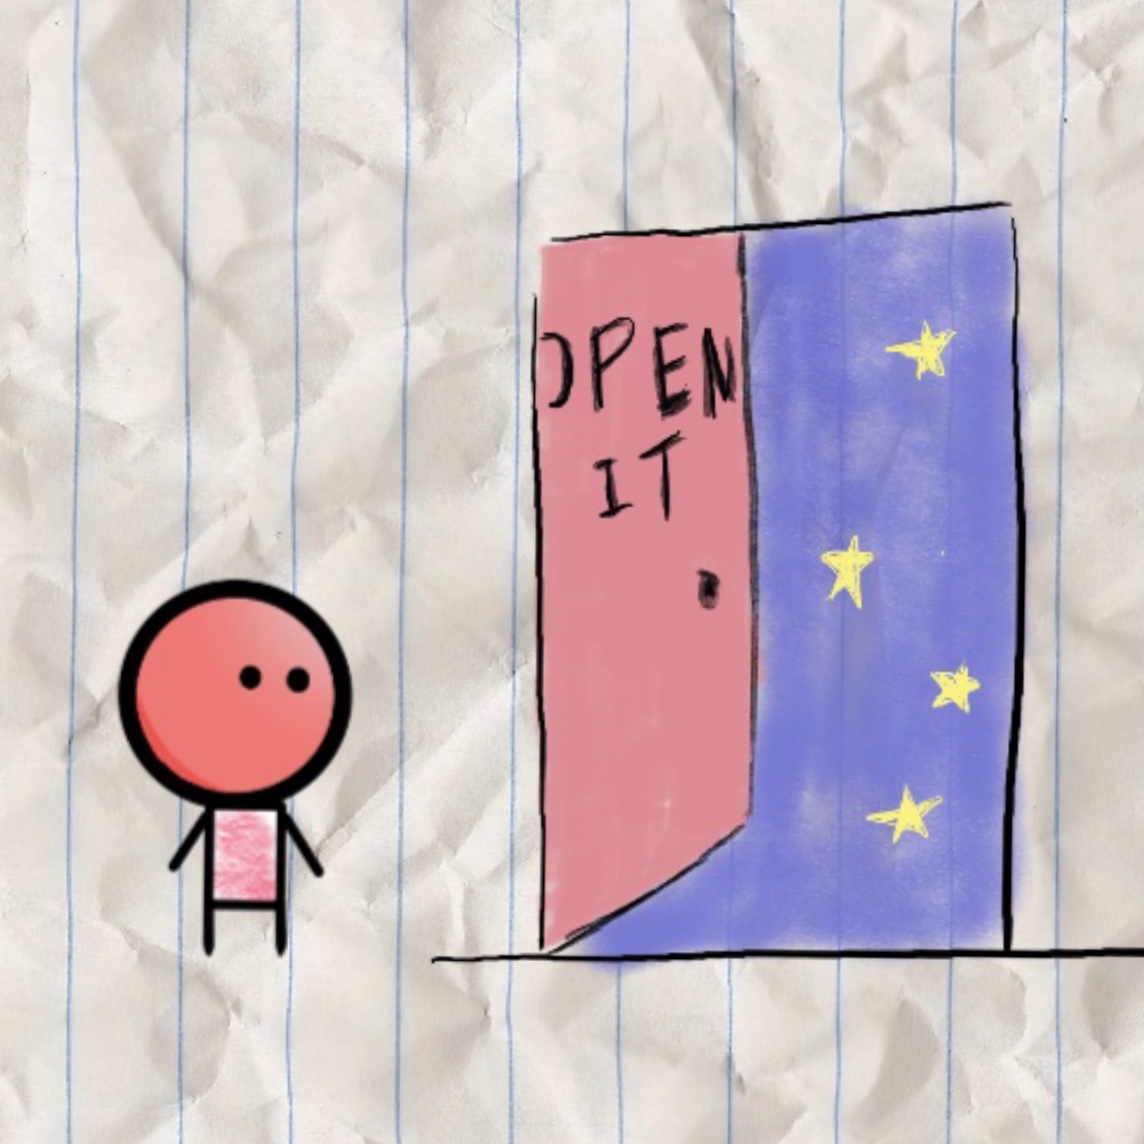 OPEN
IT